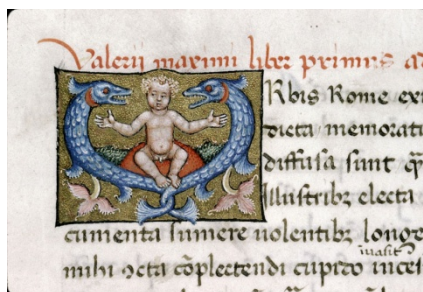 Valerij maximi liber primus
Rbis Rome
dicta memorat
diffusa sunt q̄
Illustribꝫ electa
cumenta sumere uolentibꝫ longe
mihi ɔcta cōplectendi cupido inceſ